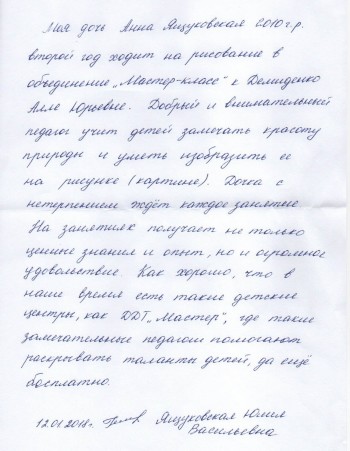 Моя дочь Анна Ящуковская 2010 г.р.
второй год ходит на рисование в
объединение „Мастер-класс" к Демиденко
Алле Юрьевне. Добрый и внимательный
педагог учит детей замечать красоту
природы и уметь изобразить ее
на рисунке (картине). Дочка с
нетерпением ждёт каждое занятие.
На занятиях получает не только
ценные знания и опыт, но и огромное
удовольствие. Как хорошо, что в
наше время есть такие детские
центры, как ДДТ „Мастер", где такие
замечательные педагоги помогают
раскрывать таланты детей, да ещё
бесплатно.
12.01.2018г. Ящуковская Юлия
Васильевна